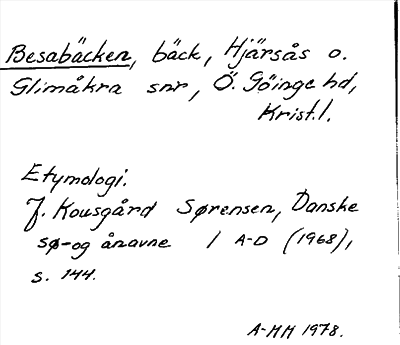 Besabäcken, bäck, Hjärsås o.
Glimåkra snr, Ö. Göinge hd,
Krist. l.
Etymologi.
J. Kousgård Sørensen, Danske
sø- og ånavne 1 A-D (1968),
s. 144.
A-MH 1978.